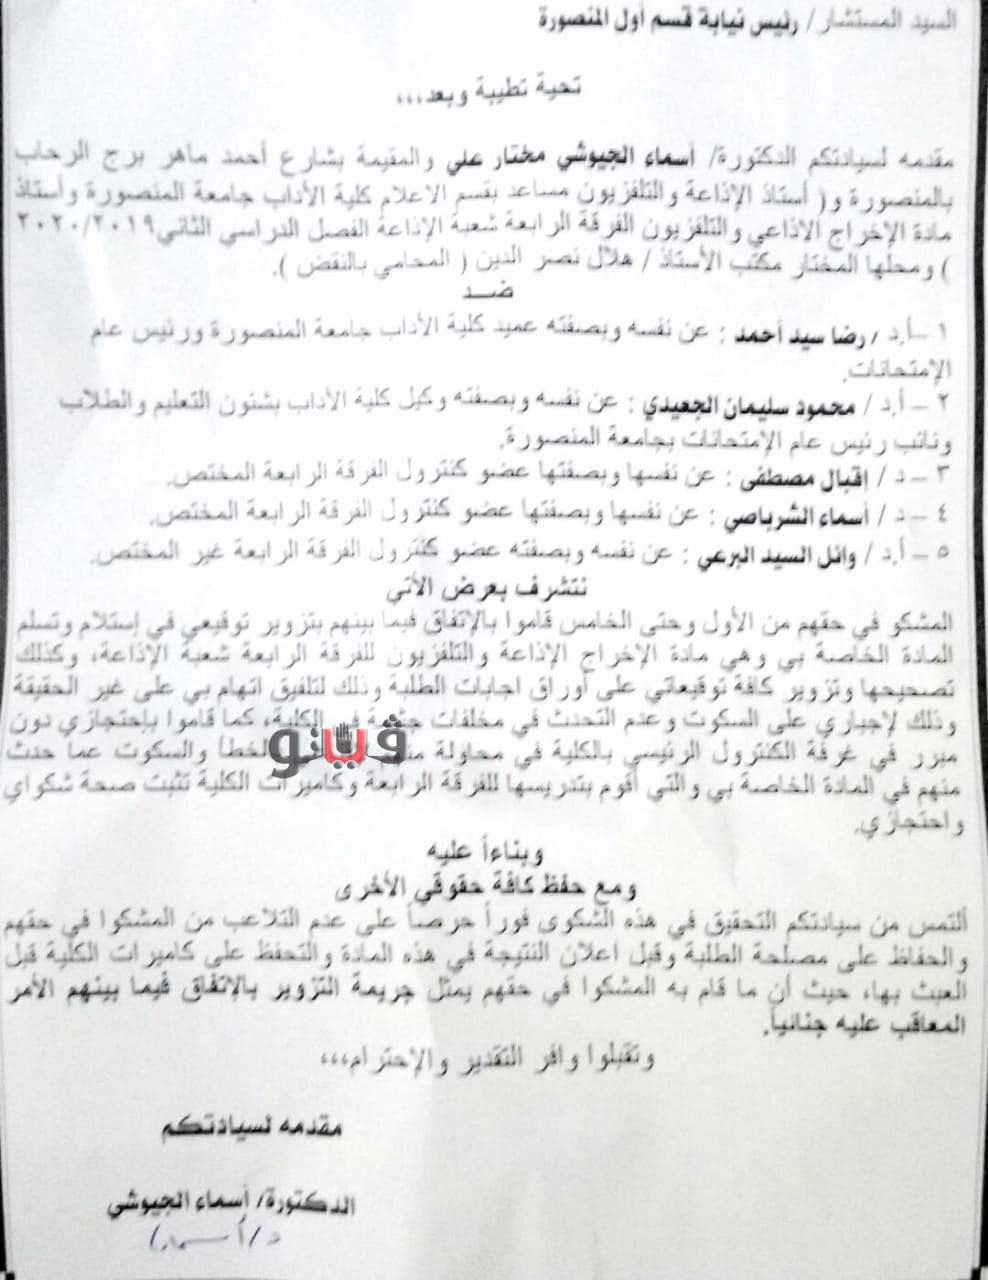 السيد المستشار/ رئيس نيابة قسم أول المنصورة
تحية تطيبة وبعد،،،
مقدمه لسيادتكم الدكتورة/ أسماء الجيوشي مختار علي والمقيمة بشارع أحمد ماهر برج الرحاب
بالمنصورة و( أستاذ الإذاعة والتلفزيون مساعد بقسم الاعلام كلية الأداب جامعة المنصورة وأستاذ
مادة الإخراج الاذاعي والتلفزيون الفرقة الرابعة شعبة الإذاعة الفصل الدراسي الثاني٢٠٢٠/٢٠١٩
) ومحلها المختار مكتب الأستاذ / هلال نصر الدين ( المحامي بالنقض ).
ضــد
١ –أ.د / رضا سيد أحمد : عن نفسه وبصفته عميد كلية الأداب جامعة المنصورة ورئيس عام
الإمتحانات.
٢ – أ.د / محمود سليمان الجعيدي : عن نفسه وبصفته وكيل كلية الأداب بشئون التعليم والطلاب
ونائب رئيس عام الإمتحانات بجامعة المنصورة.
٣ – د / إقبال مصطفى : عن نفسها وبصفتها عضو كنترول الفرقة الرابعة المختص.
٤ – د / أسماء الشرباصي : عن نفسها وبصفتها عضو كنترول الفرقة الرابعة المختص.
٥ – أ.د / وائل السيد البرعي : عن نفسه وبصفته عضو كنترول الفرقة الرابعة غير المختص.
نتشرف بعرض الأتي
المشكو في حقهم من الأول وحتى الخامس قاموا بالإتفاق فيما بينهم بتزوير توقيعي في إستلام وتسلم
المادة الخاصة بي وهي مادة الإخراج الإذاعة والتلفزيون للفرقة الرابعة شعبة الإذاعة، وكذلك
تصحيحها وتزوير كافة توقيعاتي على أوراق اجابات الطلبة وذلك لتلفيق اتهام بي على غير الحقيقة
وذلك لإجباري على السكوت وعدم التحدث في مخلفات في الكلية، كما قاموا بإحتجازي دون
ڤيتو
مبرر في غرفة الكنترول الرئيسي بالكلية في محاولة الخطأ والسكوت عما حدث
منهم في المادة الخاصة بي والتي أقوم بتدريسها للفرقة الرابعة وكاميرات الكلية تثبت صحة شكواي
واحتجازي.
وبناءاً عليه
ومع حفظ كافة حقوقي الأخرى
ألتمس من سيادتكم التحقيق في هذه الشكوى فوراً حرصاً على عدم التلاعب من المشكوا في حقهم
والحفاظ على مصلحة الطلبة وقبل اعلان النتيجة في هذه المادة والتحفظ على كاميرات الكلية قبل
العبث بها، حيث أن ما قام به المشكوا في حقهم يمثل جريمة التزوير بالإتفاق فيما بينهم الأمر
المعاقب عليه جنائياً.
وتقبلوا وافر التقدير والإحترام،،،
مقدمه لسيادتكم
الدكتورة/ أسماء الجيوشي
د/أسماء